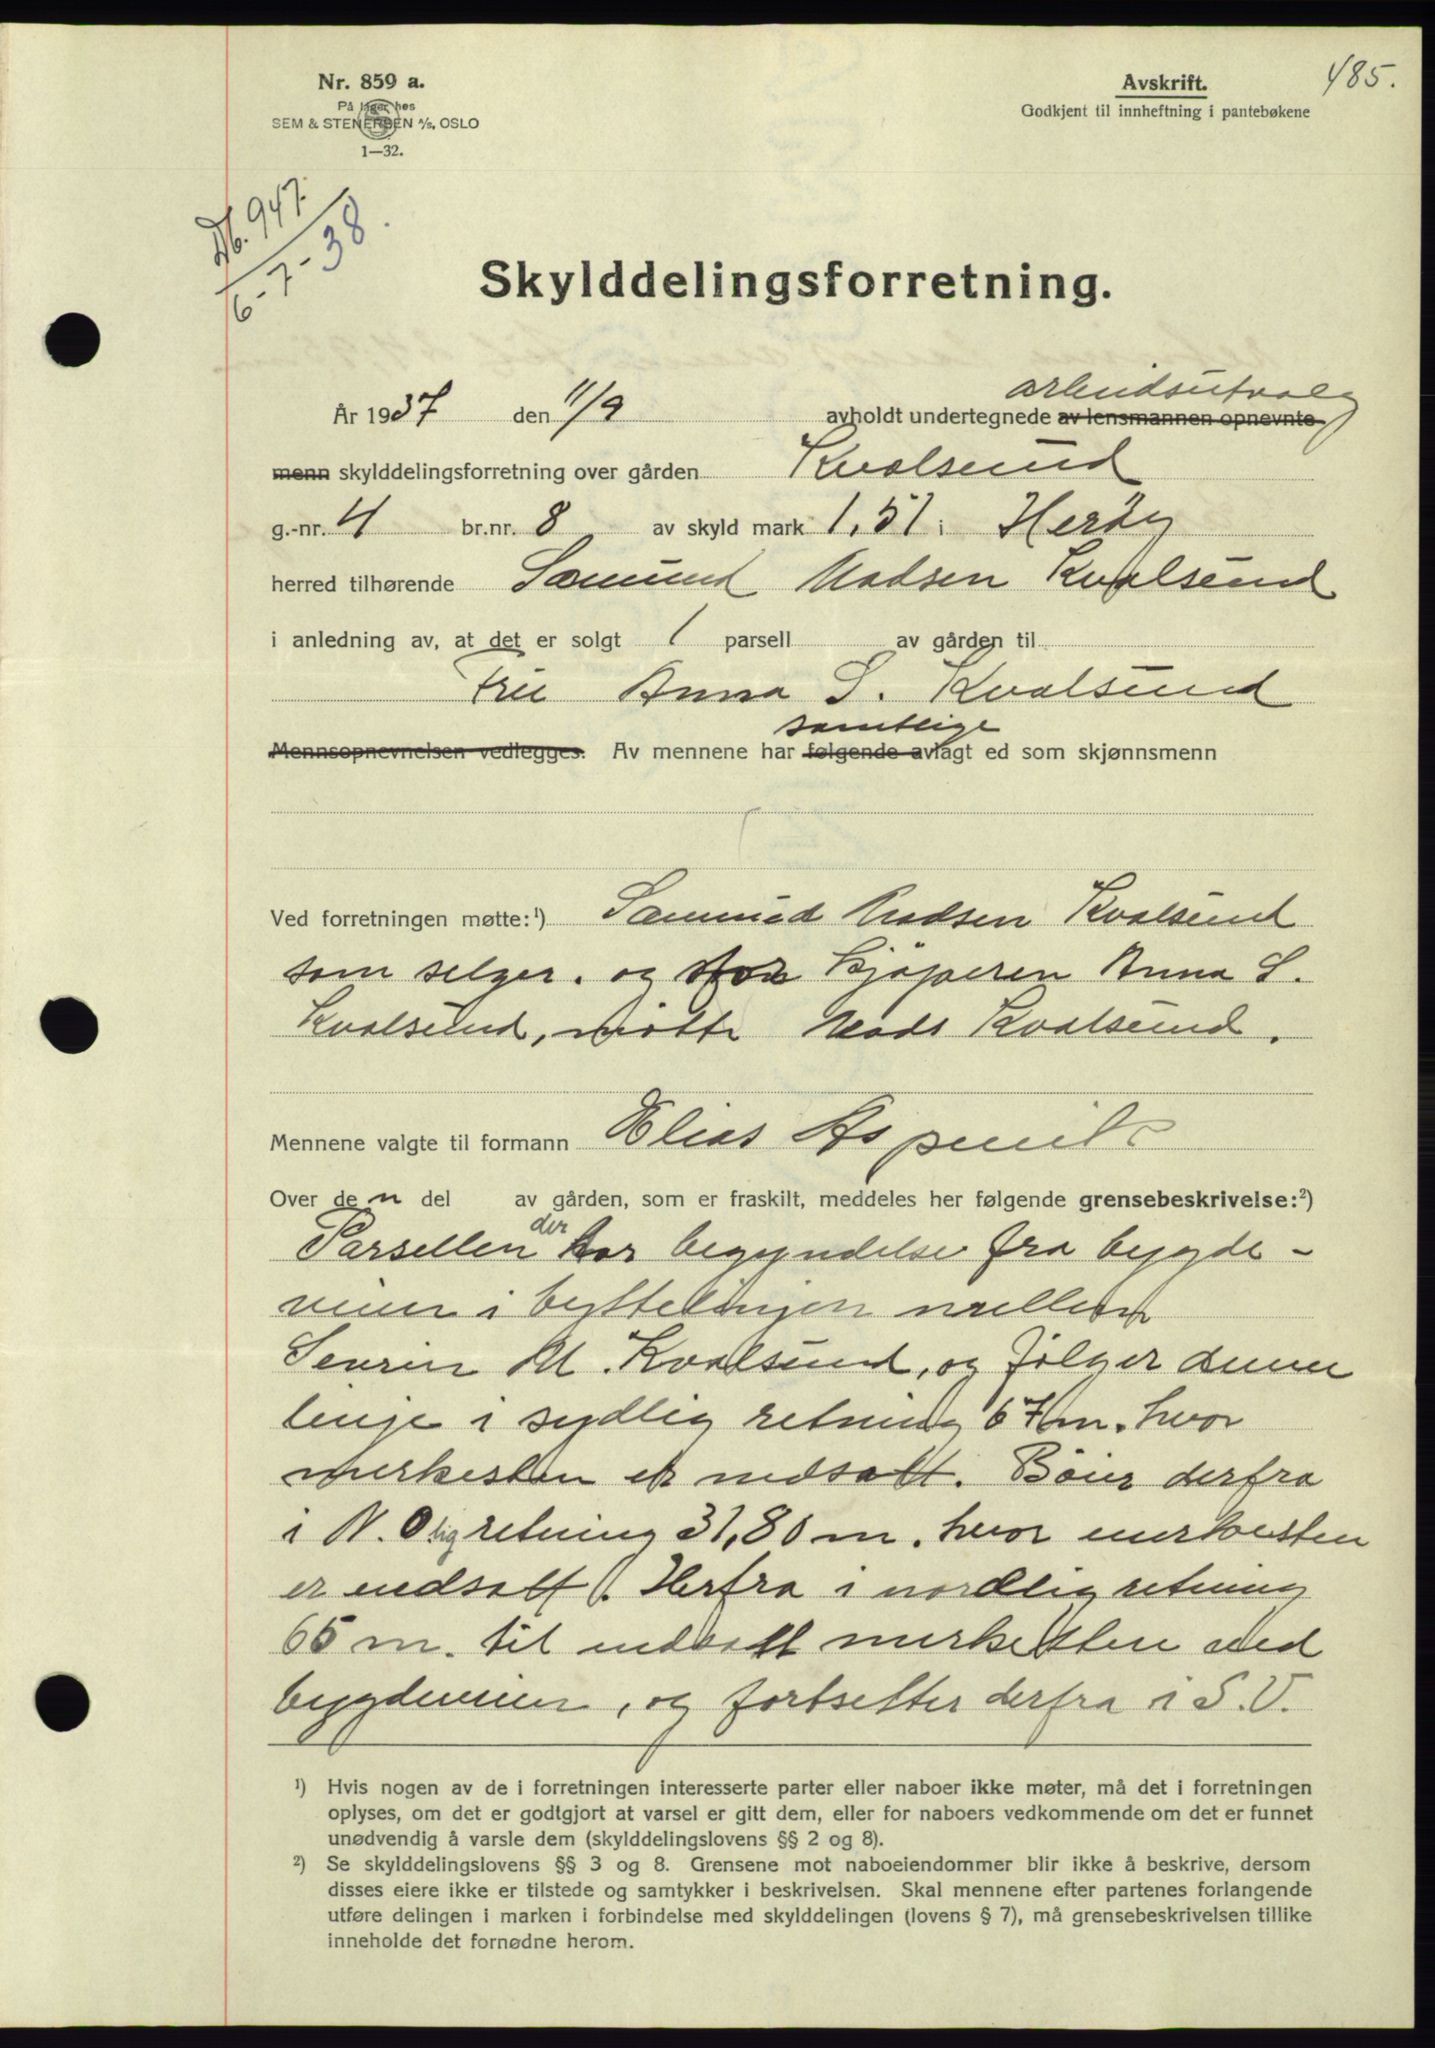 485.
Nr. 859 a.
På lager hos
SEM & STENERSEN A/S, OSLO
1—32.
Avskrift.
Godkjent til innheftning i pantebøkene
Db. 947.
6-7-38.
Skylddelingsforretning.
arbeidsutvalg
År 1937 den 11/9 avholdt undertegnede av lensmannen opnevnte
menn skylddelingsforretning over gården Kvalsund
g.-nr. 4 br.nr. 8 av skyld mark 1,51 i Herøy
herred tilhørende Sæmund Madsen Kvalsund
i anledning av, at det er solgt 1 parsell av gården til
Fru Anna S. Kvalsund
samtlige
Mennsopnevnelsen vedlegges. Av mennene har følgende avlagt ed som skjønnsmenn
Ved forretningen møtte:¹) Sæmund Madsen Kvalsund
som selger. og for kjøperen Anna S.
Kvalsund, møtte Mads Kvalsund.
Mennene valgte til formann Elias Aspevik
Over den del av gården, som er fraskilt, meddeles her følgende grensebeskrivelse:²)
der
Parsellen har begyndelse fra bygde-
veien i byttelinjen mellem
Sevrin M. Kvalsund, og følger denne
linje i sydlig retning 67 m. hvor
merkesten er nedsatt. Bøier derfra
i N.Olig retning 31,80 m. hvor merkesten
er nedsatt. Herfra i nordlig retning
65 m. til nedsatt merkesten ved
bygdeveien, og fortsetter derfra i S.V.
¹) Hvis nogen av de i forretningen interesserte parter eller naboer ikke møter, må det i forretningen
oplyses, om det er godtgjort at varsel er gitt dem, eller for naboers vedkommende om det er funnet
unødvendig å varsle dem (skylddelingslovens §§ 2 og 8).
²) Se skylddelingslovens §§ 3 og 8. Grensene mot naboeiendommer blir ikke å beskrive, dersom
disses eiere ikke er tilstede og samtykker i beskrivelsen. Skal mennene efter partenes forlangende
utføre delingen i marken i forbindelse med skylddelingen (lovens § 7), må grensebeskrivelsen tillike
inneholde det fornødne herom.